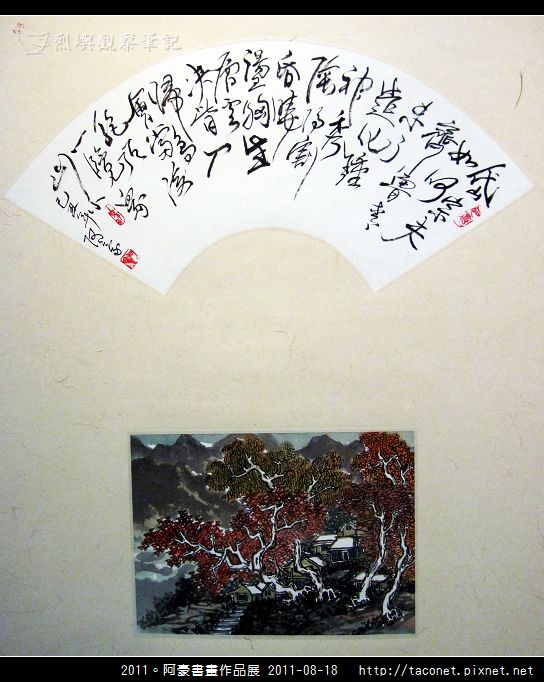 烈嶼觀察筆記
岱宗夫
如何
齊魯青
未了
造化鍾
神秀
陰陽割
昏曉
盪胸生
層雲
決眥入
歸鳥
會當凌
絕頂
一覽眾
山小
己丑年
2011。阿豪書畫作品展 2011-08-18 http://taconet.pixnet.net